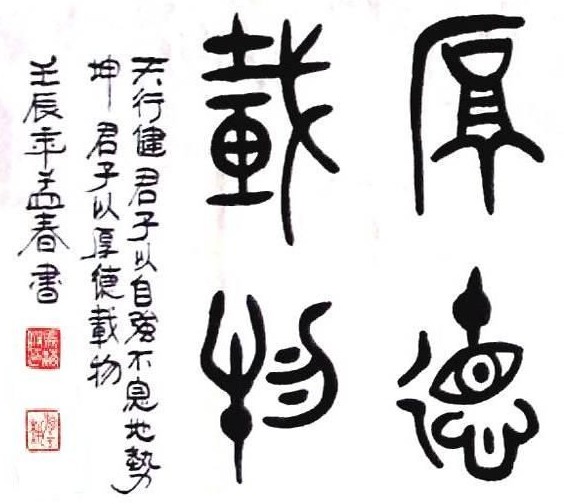 厚德
載物
天行健君子以自強不息地勢
坤 君子以厚德載物
壬辰年孟春書